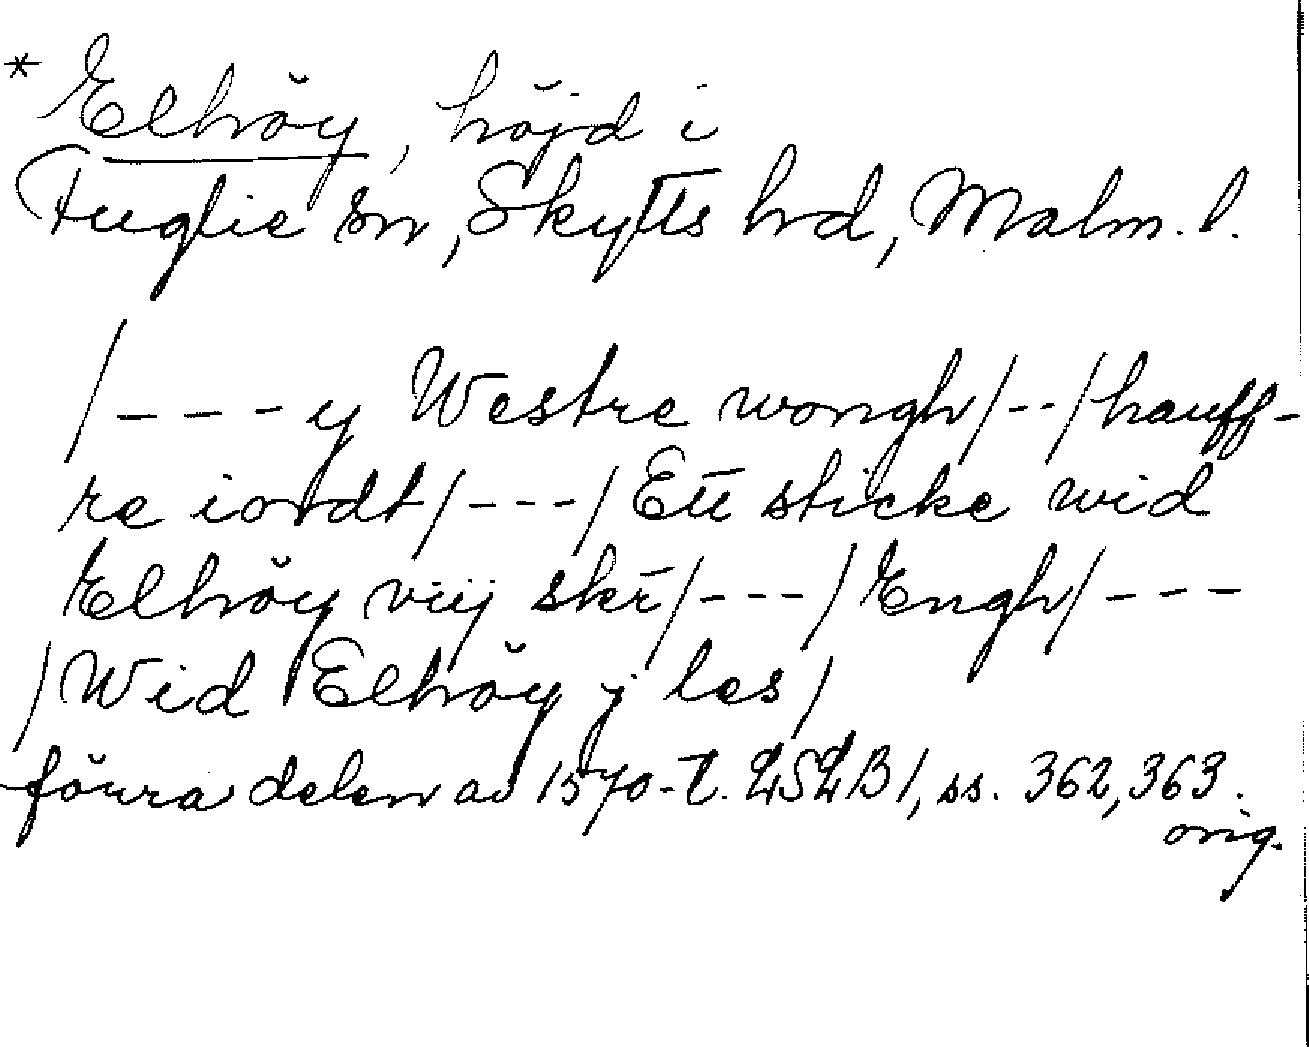 * Elhöy, höjd i
Fuglie sn, Skytts hd, Malm. l.
/---y Westre wongh/--/hauff-
re iordt/---/Ett sticke wid
Elhöy viij skr̄/---/Engh/---
/Wid Elhöy j les/
förra delen av 1570-t. LSLB 1, ss. 362, 363.
orig.